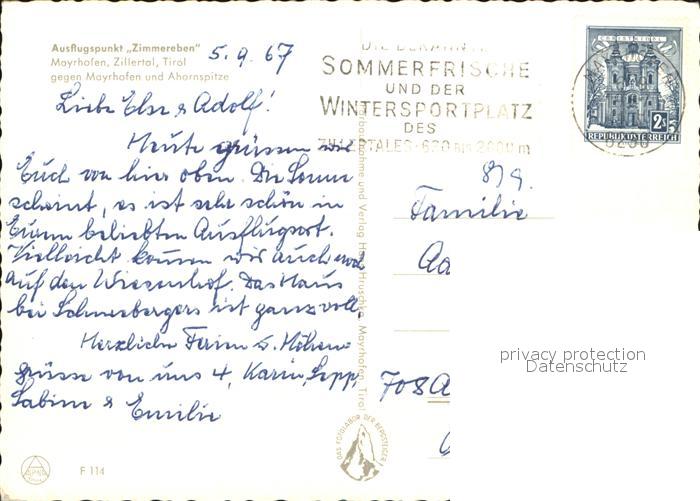 Ausflugspunkt „Zimmereben"
Mayrhofen, Zillertal, Tirol
gegen Mayrhofen und Ahornspitze
5.9.67
Liebe Else & Adolf!
Heute grüssen wir
Euch von hier oben. Die Sonne
scheint, es ist sehr schön in
Eurem beliebten Ausflugsort.
Vielleicht kommen wir auch mal
auf den Wiesenhof. Das Haus
bei Schneebergers ist ganz voll.
Herzliche Ferien u. Höhen-
grüsse von uns 4, Karin, Sepp,
Sabine & Emilie
F 114
DIE BEKANNTE
SOMMERFRISCHE
UND DER
WINTERSPORTPLATZ
DES
ZILLERTALES · 630 BIS 2000 m
CHRISTKINDL
2 S
REPUBLIK ÖSTERREICH
8/9.
Familie
Aa
708 A
Verlag Hans Hruschka, Mayrhofen, Tirol
DAS FOTOATELIER DER BERGSTEIGER
privacy protection
Datenschutz